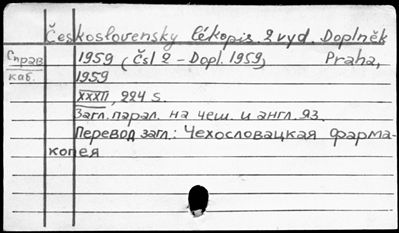 Československy lékopis. 2 vyd. Doplněk
Справ. 1959 (Čsl 2 - Dopl. 1959) Praha,
каб. 1959
XXXII, 224 s.
Загл. парал. на чеш. и англ. яз.
Перевод загл.: Чехословацкая фарма-
копея